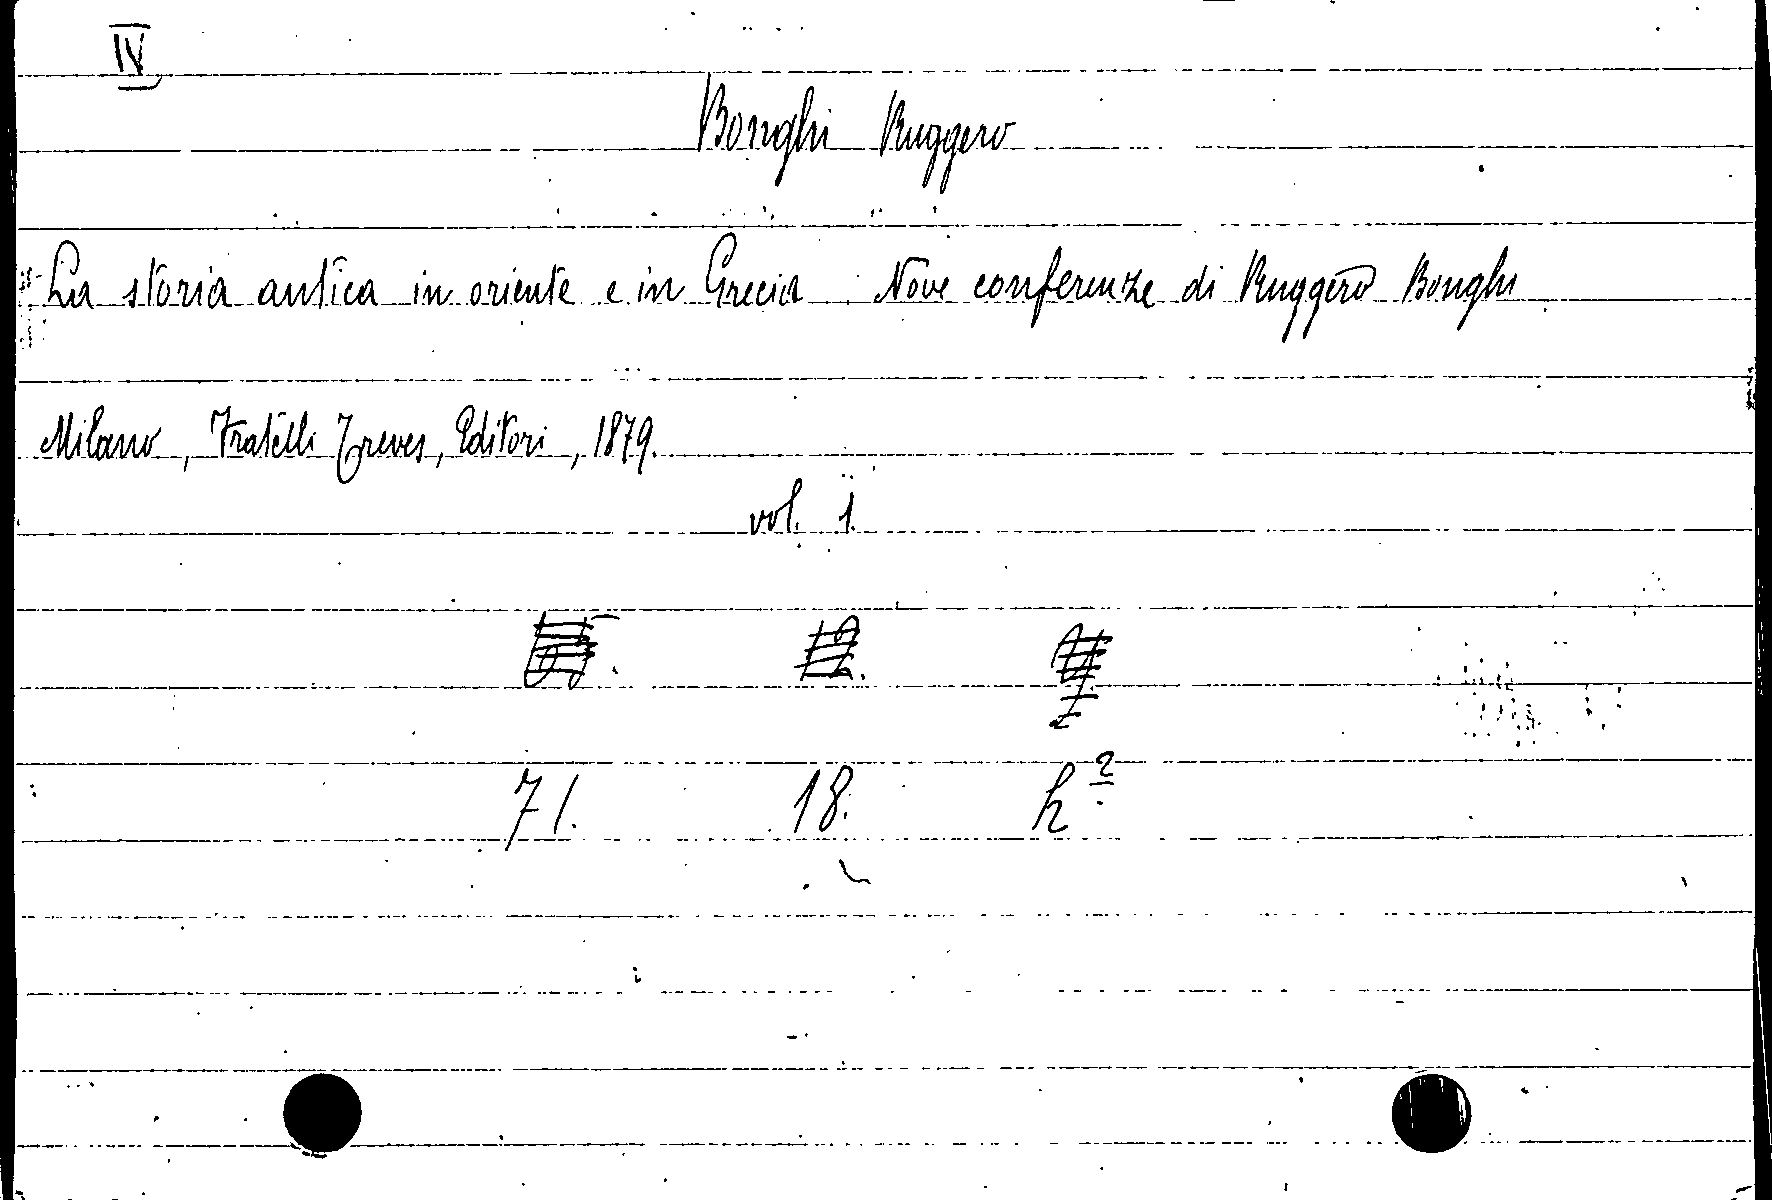 IV
Bonghi Ruggero
La storia antica in oriente e in Grecia. Nove conferenze di Ruggero Bonghi
Milano, Fratelli Treves, Editori, 1879.
vol. 1.
71. 18. h²